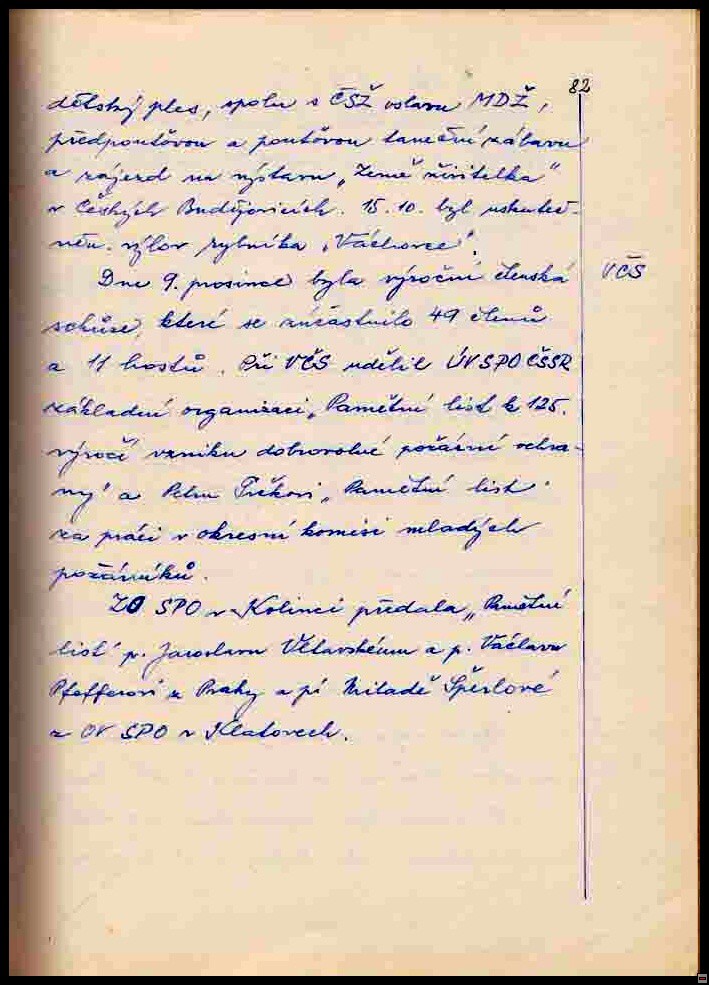 82
dětský ples, spolu s ČSŽ oslavu MDŽ,
předpouťovou a pouťovou taneční zábavu
a zájezd na výstavu „Země živitelka"
v Českých Budějovicích. 15.10. byl uskuteč-
něn výlov rybníka „Váchovec".
Dne 9. prosince byla výroční členská
VČS
schůze, které se zúčastnilo 49 členů
a 11 hostů. Při VČS udělil ÚV SPO ČSSR
základní organizaci „Pamětní list k 125.
výročí vzniku dobrovolné požární ochra-
ny" a Petru
„Pamětní list"
za práci v okresní komisi mladých
požárníků.
ZO SPO v Kolinci předala „Pamětní
list" p. Jaroslavu Vltavskému a p. Václavu
Pfefferovi z Prahy a pí Miladě
z OV SPO v Klatovech.